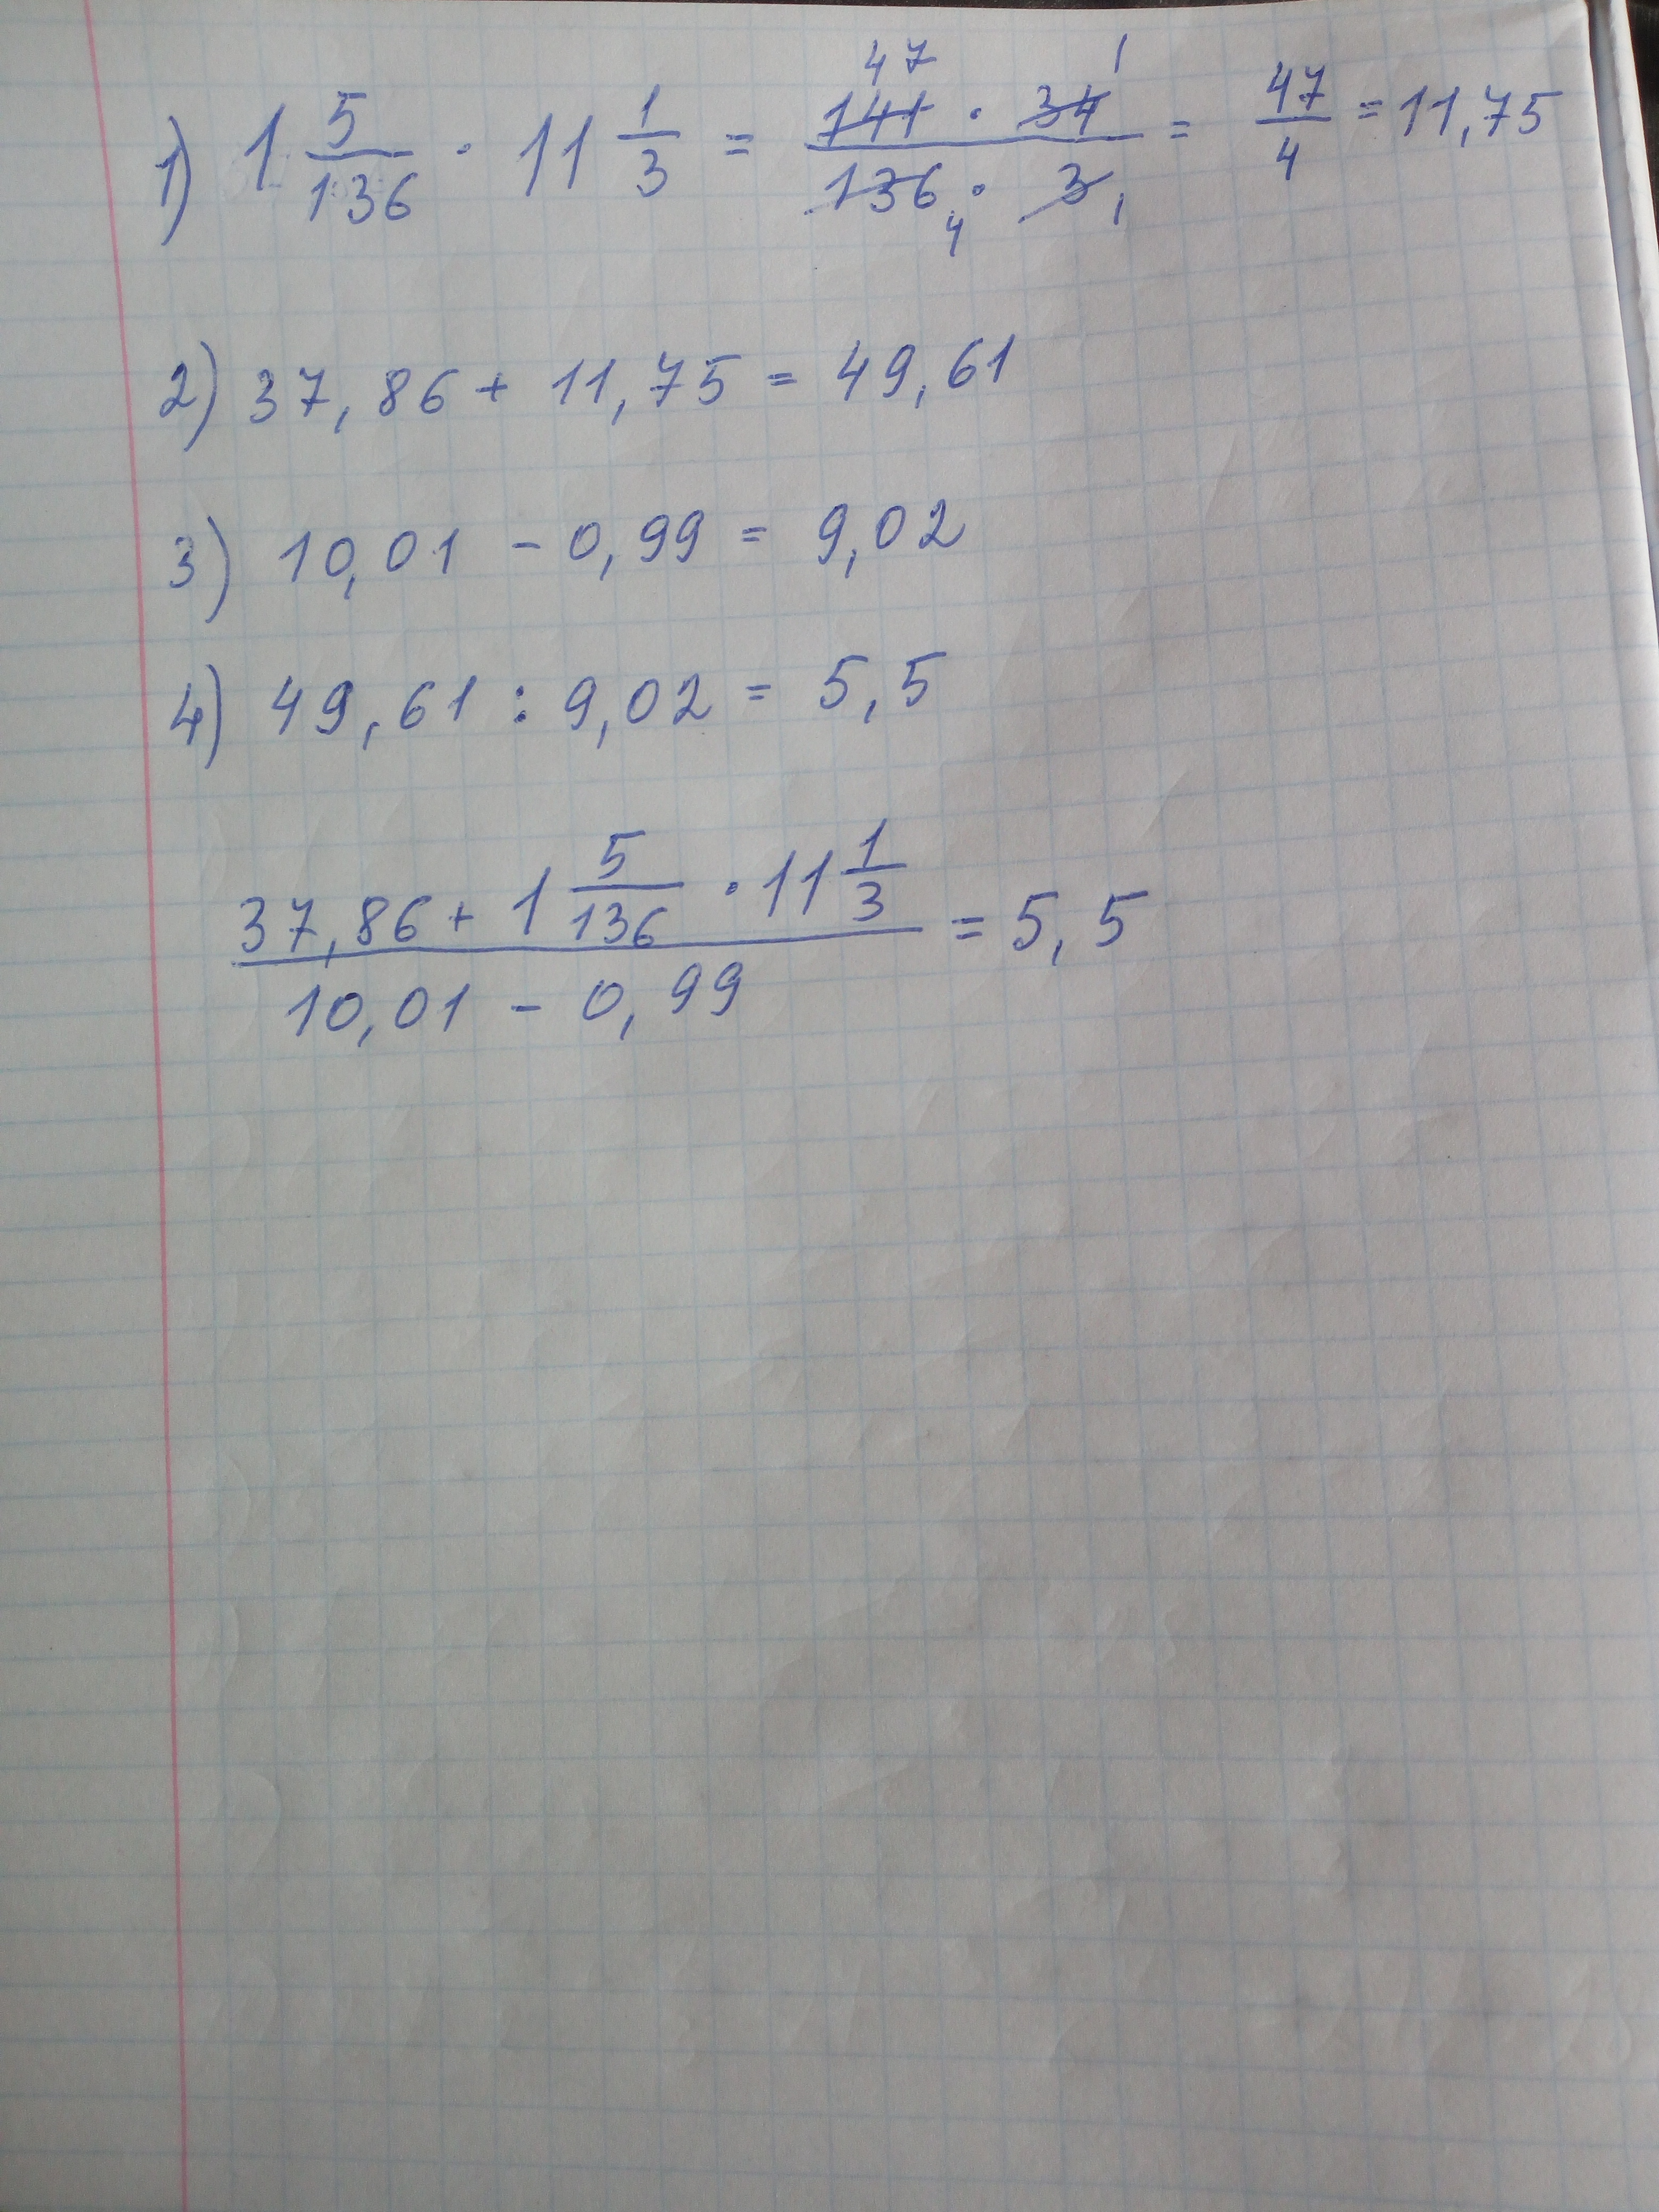 1) 1 5/136 · 11 1/3 = 141 47 · 34 1 / 136 4 · 3 1 = 47/4 = 11,75
2) 37,86 + 11,75 = 49,61
3) 10,01 - 0,99 = 9,02
4) 49,61 : 9,02 = 5,5
37,86 + 1 5/136 · 11 1/3 = 5,5
10,01 - 0,99